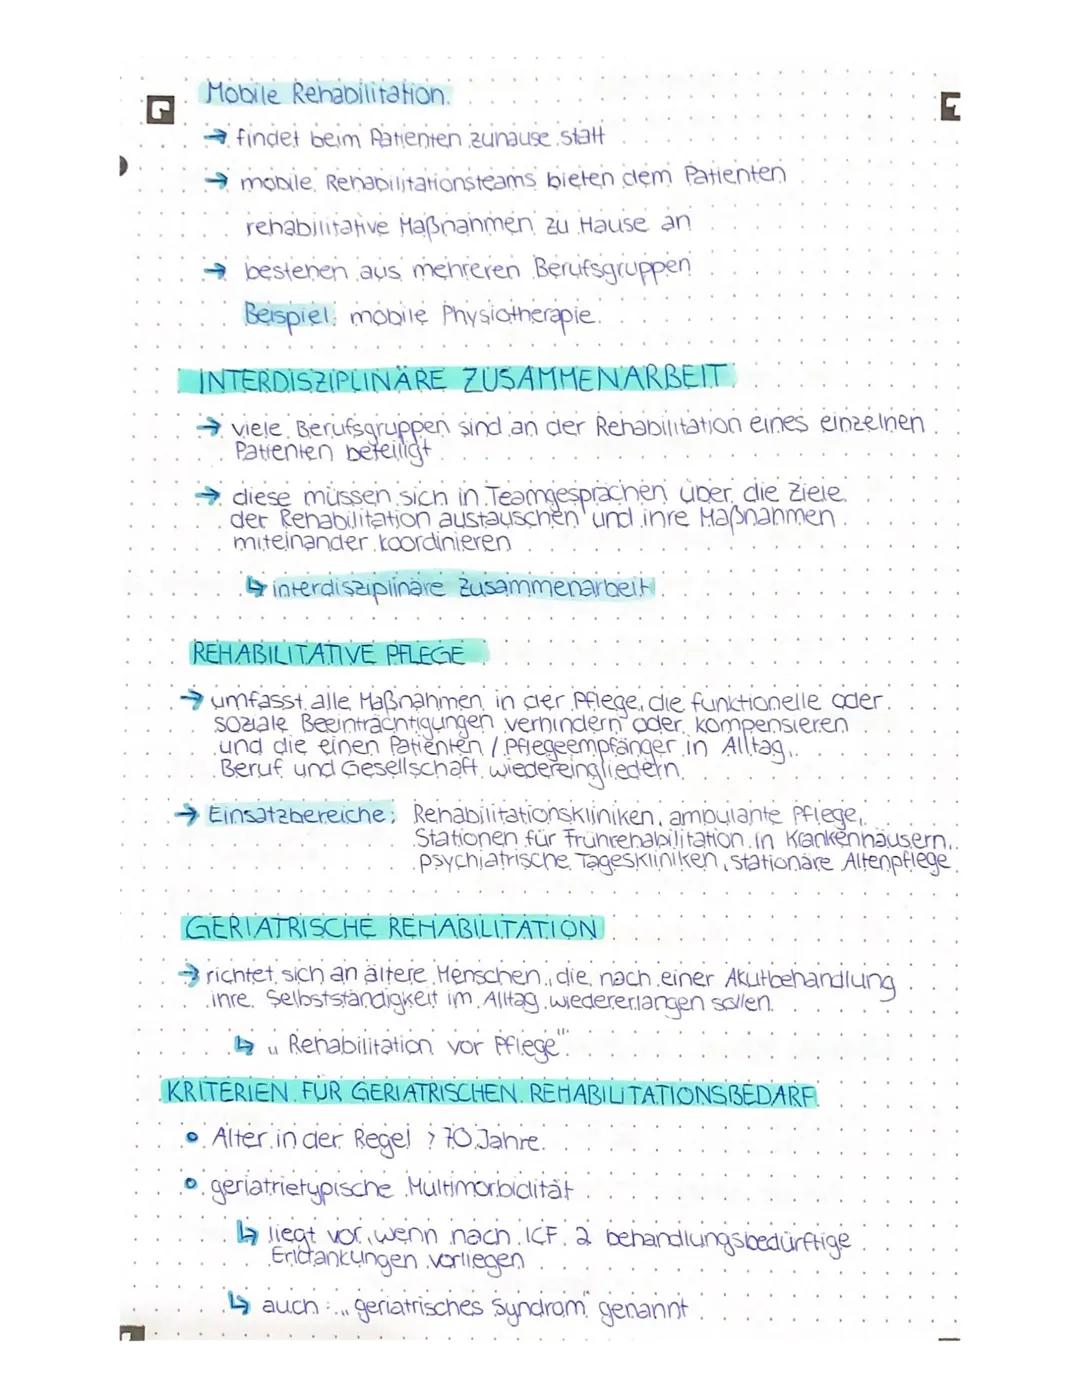 Mobile Rehabilitation.
→ findet beim Patienten zuhause statt
→ mobile Rehabilitationsteams bieten dem Patienten
rehabilitative Maßnahmen zu Hause an
→ bestehen aus mehreren Berufsgruppen
Beispiel: mobile Physiotherapie.
INTERDISZIPLINÄRE ZUSAMMENARBEIT
→ viele Berufsgruppen sind an der Rehabilitation eines einzelnen
Patienten beteiligt
→ diese müssen sich in Teamgesprächen über die Ziele
der Rehabilitation austauschen und ihre Maßnahmen
miteinander koordinieren
↳ interdisziplinäre Zusammenarbeit
REHABILITATIVE PFLEGE
→ umfasst alle Maßnahmen in der Pflege, die funktionelle oder
soziale Beeinträchtigungen verhindern oder kompensieren
und die einen Patienten / Pflegeempfänger in Alltag,
Beruf und Gesellschaft wiedereingliedern.
→ Einsatzbereiche: Rehabilitationskliniken, ambulante Pflege,
Stationen für Frührehabilitation in Krankenhäusern,
psychiatrische Tageskliniken, stationäre Altenpflege
GERIATRISCHE REHABILITATION
→ richtet sich an ältere Menschen, die nach einer Akutbehandlung
ihre Selbstständigkeit im Alltag wiedererlangen sollen.
↳ „Rehabilitation vor Pflege"
KRITERIEN FÜR GERIATRISCHEN REHABILITATIONSBEDARF
• Alter in der Regel > 70 Jahre
• geriatrietypische Multimorbidität
↳ liegt vor, wenn nach ICF 2 behandlungsbedürftige
Erkrankungen vorliegen
↳ auch: „geriatrisches Syndrom" genannt